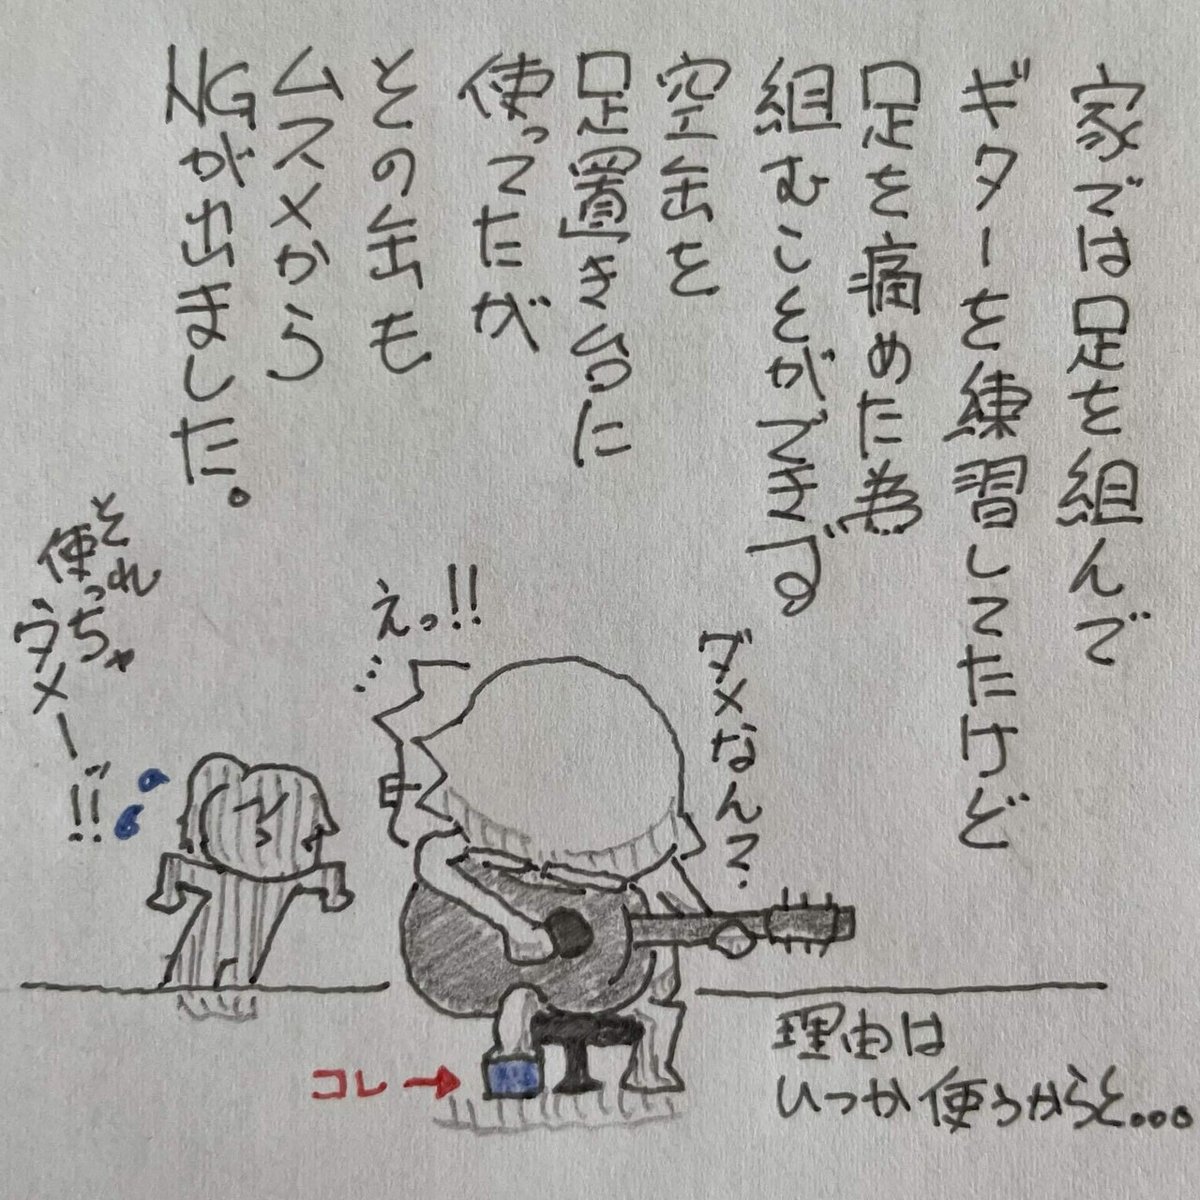 家では足を組んで
ギターを練習してたけど
足を痛めた為
組むことができず
空缶を
足置き台に
使ってたが
その缶も
ムスメから
NGが出ました。
それ
使っちゃ
ダメー!!
えっ!!
ダメなん?
コレ→
理由は
いつか使うからと...